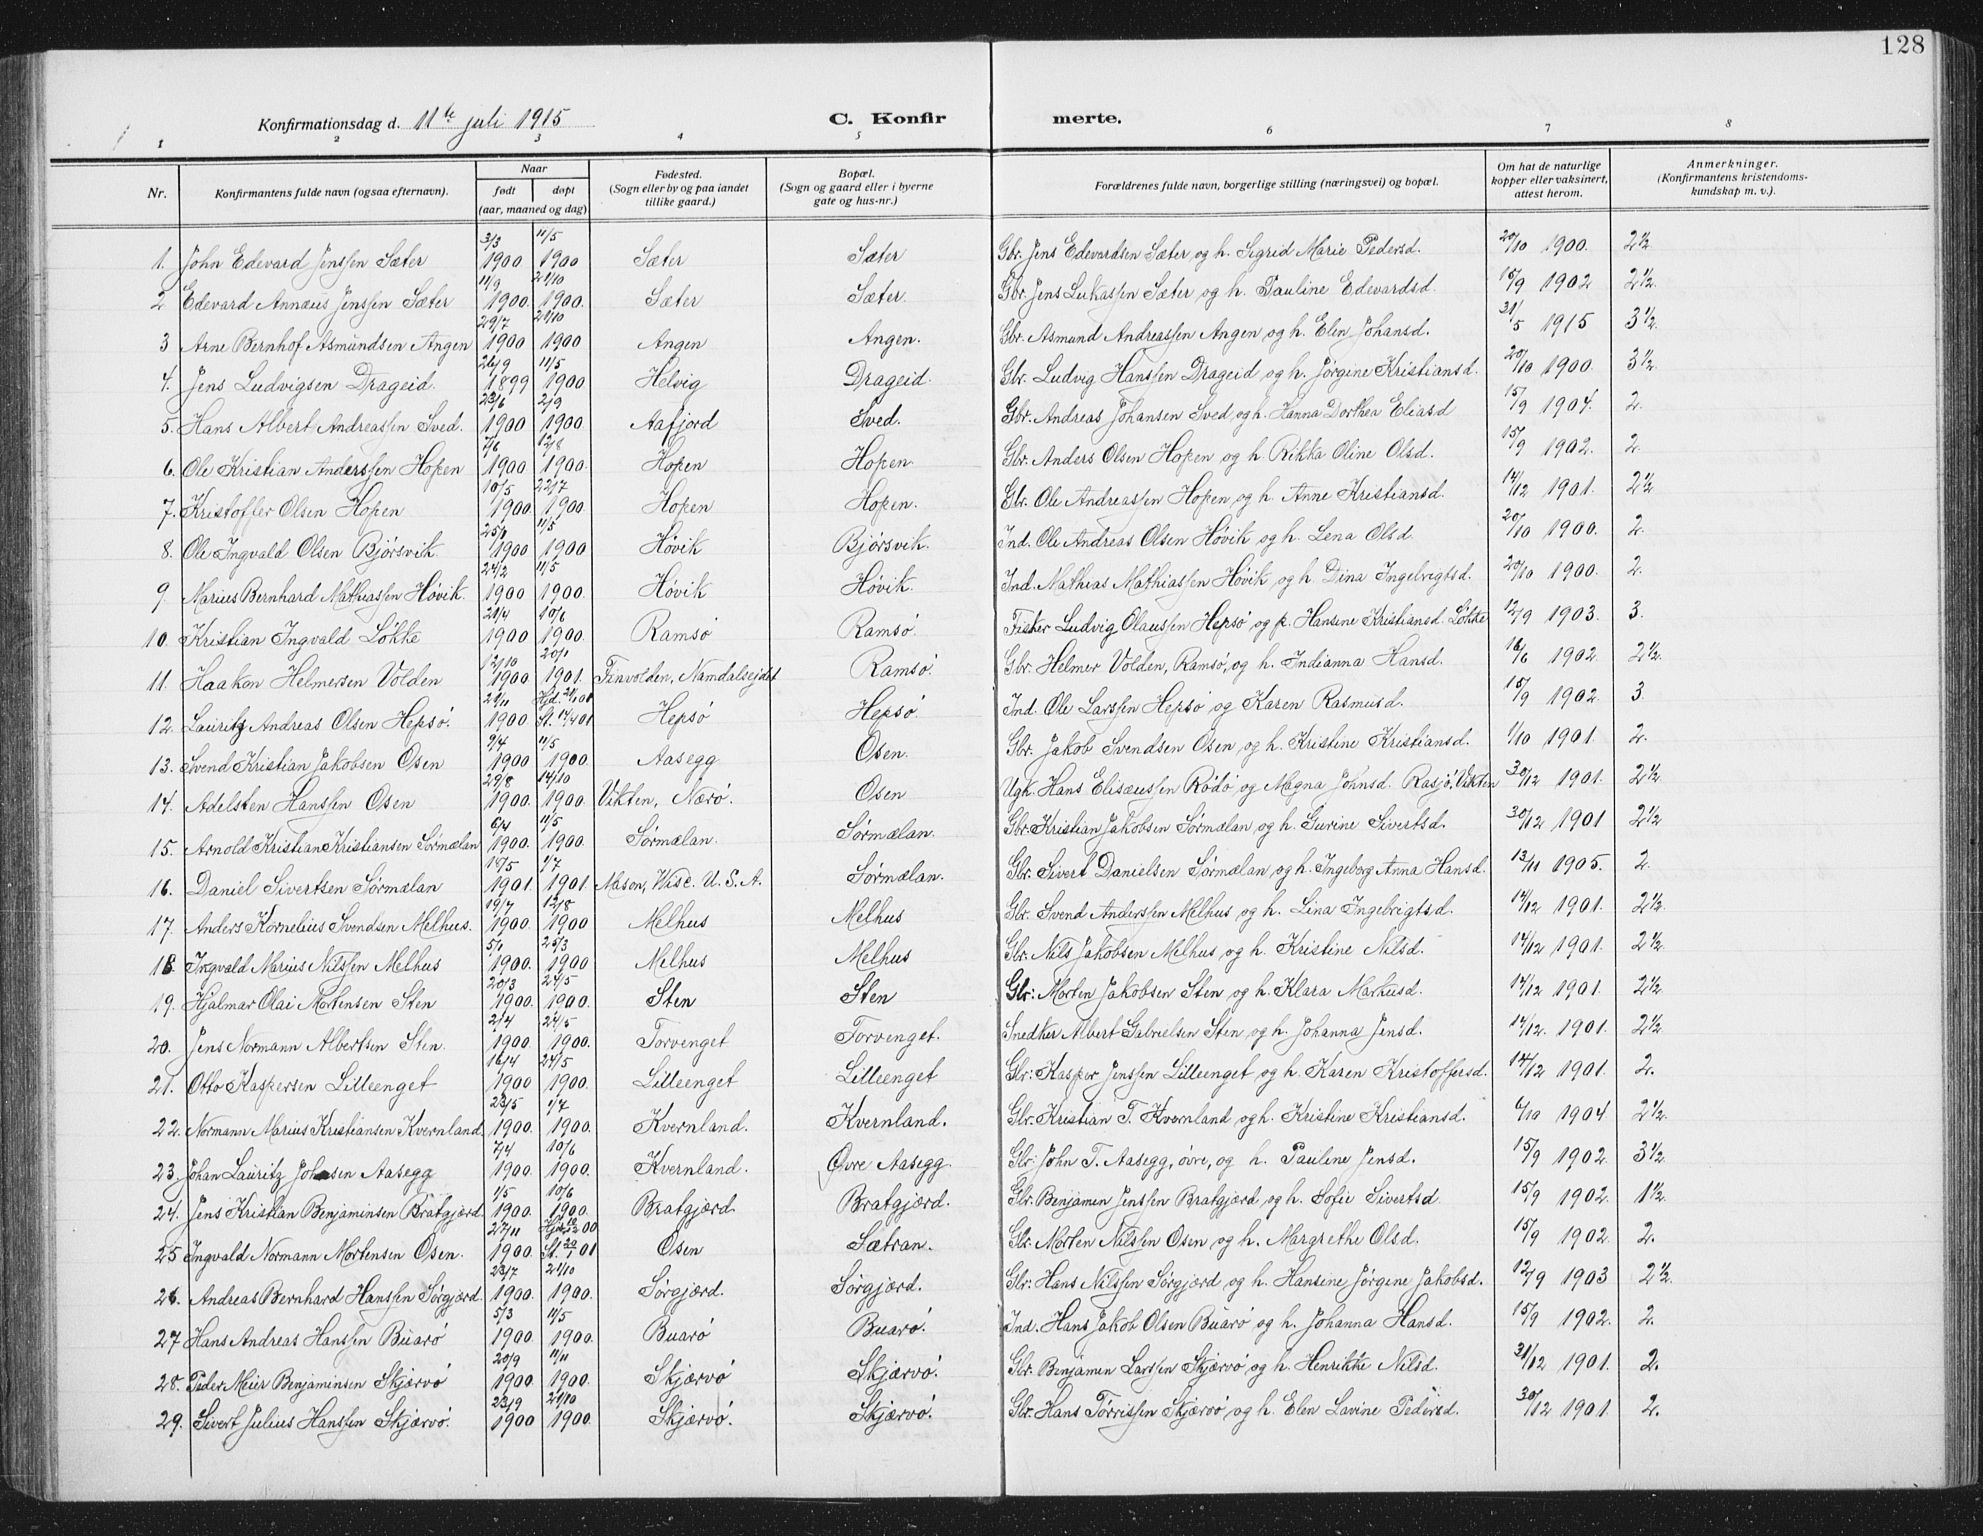 128
Konfirmationsdag d. 11te juli 1915 C. Konfirmerte.
1 2 3 4 5 6 7 8
Nr. Konfirmantens fulde navn (ogsaa efternavn). Naar født døpt (aar, maaned og dag) Fødested. (Sogn eller by og paa landet tillike gaard.) Bopæl. (Sogn og gaard eller i byerne gate og hus-nr.) Forældrenes fulde navn, borgerlige stilling (næringsvei) og bopæl. Om hat de naturlige kopper eller vaksinert, attest herom. Anmerkninger. (Konfirmantens kristendomskundskap m. v.).
1. John Edevard Jenssen Sæter 3/3 1900 11/5 1900 Sæter Sæter Gbr. Jens Edevardsen Sæter og h. Sigrid Marie Pedersd. 20/10 1900. 2½
2 Edevard Annæus Jenssen Sæter 11/9 1900. 21/10 1900. Sæter Sæter. Gbr. Jens Lukassen Sæter og h. Pauline Edevardsd. 15/9 1902 2½.
3 Arne Bernhof Asmundsen Angen 29/7 1900 21/10 1900 Angen Angen. Gbr. Asmund Andreassen Angen og h. Elen Johansd. 31/5 1915 3½.
4. Jens Ludvigsen Drageid. 26/9 1899 11/5 1900. Helvig Drageid. Gbr. Ludvig Hanssen Drageid og h. Jørgine Kristiansd. 20/10 1900. 3½.
5. Hans Albert Andreassen Sved. 23/6 1900 2/9 1900 Aafjord Sved. Gbr. Andreas Johansen Sved og h. Hanna Dorthea Eliasd 15/9 1904. 2.
6. Ole Kristian Anderssen Hopen 7/6 1900 12/8 1900. Hopen Hopen. Gbr. Anders Olsen Hopen og h. Rikka Oline Olsd. 15/9 1902. 2.
7. Kristoffer Olsen Hopen 10/5 1900. 22/7 1900. Hopen Hopen. Gbr. Ole Andreassen Hopen og h. Anne Kristiansd. 14/12 1901. 2½
8. Ole Ingvald Olsen Bjørsvik. 25/1 1900 11/5 1900 Høvik Bjørsvik. Ind. Ole Andreas Olsen Høvik og h. Lena Olsd. 20/10 1900. 2.
9. Marius Bernhard Mathiassen Høvik. 24/2 1900 11/5 1900. Høvik Høvik. Ind. Mathias Mathiassen Høvik og h. Dina Ingebrigtsd. 20/10 1900. 2.
10. Kristian Ingvald Løkke 21/4 1900 10/6 1900. Ramsø Ramsø. Fisker Ludvig Olaussen Hepsø og p. Hansine Kristiansd. Løkke 12/9 1903. 3.
11. Haakon Helmersen Volden 12/10 1900. 20/1 1901. Finvolden, Namdalseidet Ramsø. Gbr. Helmer Volden, Ramsø, og h. Indianna Hansd. 16/6 1902. 2½.
12. Lauritz Andreas Olsen Hepsø. 1900 Hjd. St. 14/4 01 Hepsø Hepsø. Ind. Ole Larssen Hepsø og Karen Rasmusd. 15/9 1902. 3.
13. Svend Kristian Jakobsen Osen 9/4 1900 11/5 1900. Aasegg Osen. Gbr. Jakob Svendsen Osen og h. Kristine Kristiansd. 1/10 1901. 2.
14. Adelsten Hanssen Osen 29/8 1900. 14/10 1900. Vikten, Nærø. Osen Ugh. Hans Elisæussen Rødø og Magna Johnsd. Rasjø, Vikten 30/12 1901. 2½
15. Arnold Kristian Kristiansen Sørmælan 6/4 1900. 11/5 1900. Sørmælan. Sørmælan. Gbr. Kristian Jakobsen Sørmælan og h. Gurine Sivertsd. 30/12 1901 2½
16. Daniel Sivertsen Sørmælan 10/5 1901. 1/7 1901. Mason, Wisc. U. S. A. Sørmælan. Gbr. Sivert Danielsen Sørmælan og h. Ingeborg Anna Hansd. 13/11 1905. 2.
17. Anders Kornelius Svendsen Melhus. 19/7 1900. 12/8 1900 Melhus Melhus Gbr. Svend Anderssen Melhus og h. Lina Ingebrigtsd. 14/12 1901. 2½.
18. Ingvald Marius Nilssen Melhus 5/1 1900. 25/3 1900 Melhus Melhus Gbr. Nils Jakobsen Melhus og h. Kristine Nilsd. 14/12 1901. 2½.
19. Hjalmar Olai Mortensen Sten 20/3 1900. 24/5 1900. Sten Sten Gbr: Morten Jakobsen Sten og h. Klara Markusd. 14/12 1901. 2½.
20. Jens Normann Albertsen Sten. 2/4 1900. 24/5 1900. Torvenget Torvenget. Snedker Albert Gabrielsen Sten og h. Johanna Jensd. 14/12. 1901. 2½
21. Otto Kaspersen Lilleenget 16/4 1900 24/5 1900. Lilleenget Lilleenget Gbr: Kasper Jenssen Lilleenget og h. Karen Kristoffersd. 14/12 1901. 2.
22. Normann Marius Kristiansen Kvernland 23/5 1900. 1/7 1900. Kvernland. Kvernland. Gbr. Kristian T. Kvernland og h. Kristine Kristiansd. 6/10 1904 2½.
23. Johan Lauritz Johnsen Aasegg 7/4 1900. 10/6 1900. Kvernland. Øvre Aasegg. Gbr: John T. Aasegg, øvre, og h. Pauline Jensd. 15/9 1902. 3½
24. Jens Kristian Benjaminsen Bratgjærd. 1/5 1900. 10/6 1900. Bratgjærd. Bratgjærd. Gbr. Benjamin Jenssen Bratgjærd og h. Sofie Sivertsd. 15/9 1902. 1½
25 Ingvald Normann Mortensen Osen. 27/11 1900. Hjd. 00 St. 20/1 01 Osen Sætran. Gbr. Morten Nilssen Osen og h. Margrethe Olsd. 15/9 1902. 2.
26. Andreas Bernhard Hanssen Sørgjærd. 23/7 1900. 21/10 1900. Sørgjærd. Sørgjærd. Gbr: Hans Nilssen Sørgjærd og h. Hansine Jørgine Jakobsd. 12/9 1903 2½.
27 Hans Andreas Hanssen Buarø 5/3 1900. 11/5 1900. Buarø Buarø. Ind. Hans Jakob Olsen Buarø og h. Johanna Hansd. 15/9 1902. 2.
28. Peder Meier Benjaminsen Skjærvø 20/9 1900. 11/11 1900. Skjærvø Skjærvø. Gbr. Benjamin Larssen Skjærvø og h. Henrikke Nilsd. 31/12 1901. 2.
29. Sivert Julius Hanssen Skjærvø. 23/9 1900 21/10 1900. Skjærvø. Skjærvø. Gbr. Hans Tørrissen Skjærvø og h. Elen Lavine Pedersd. 30/12 1901. 2.